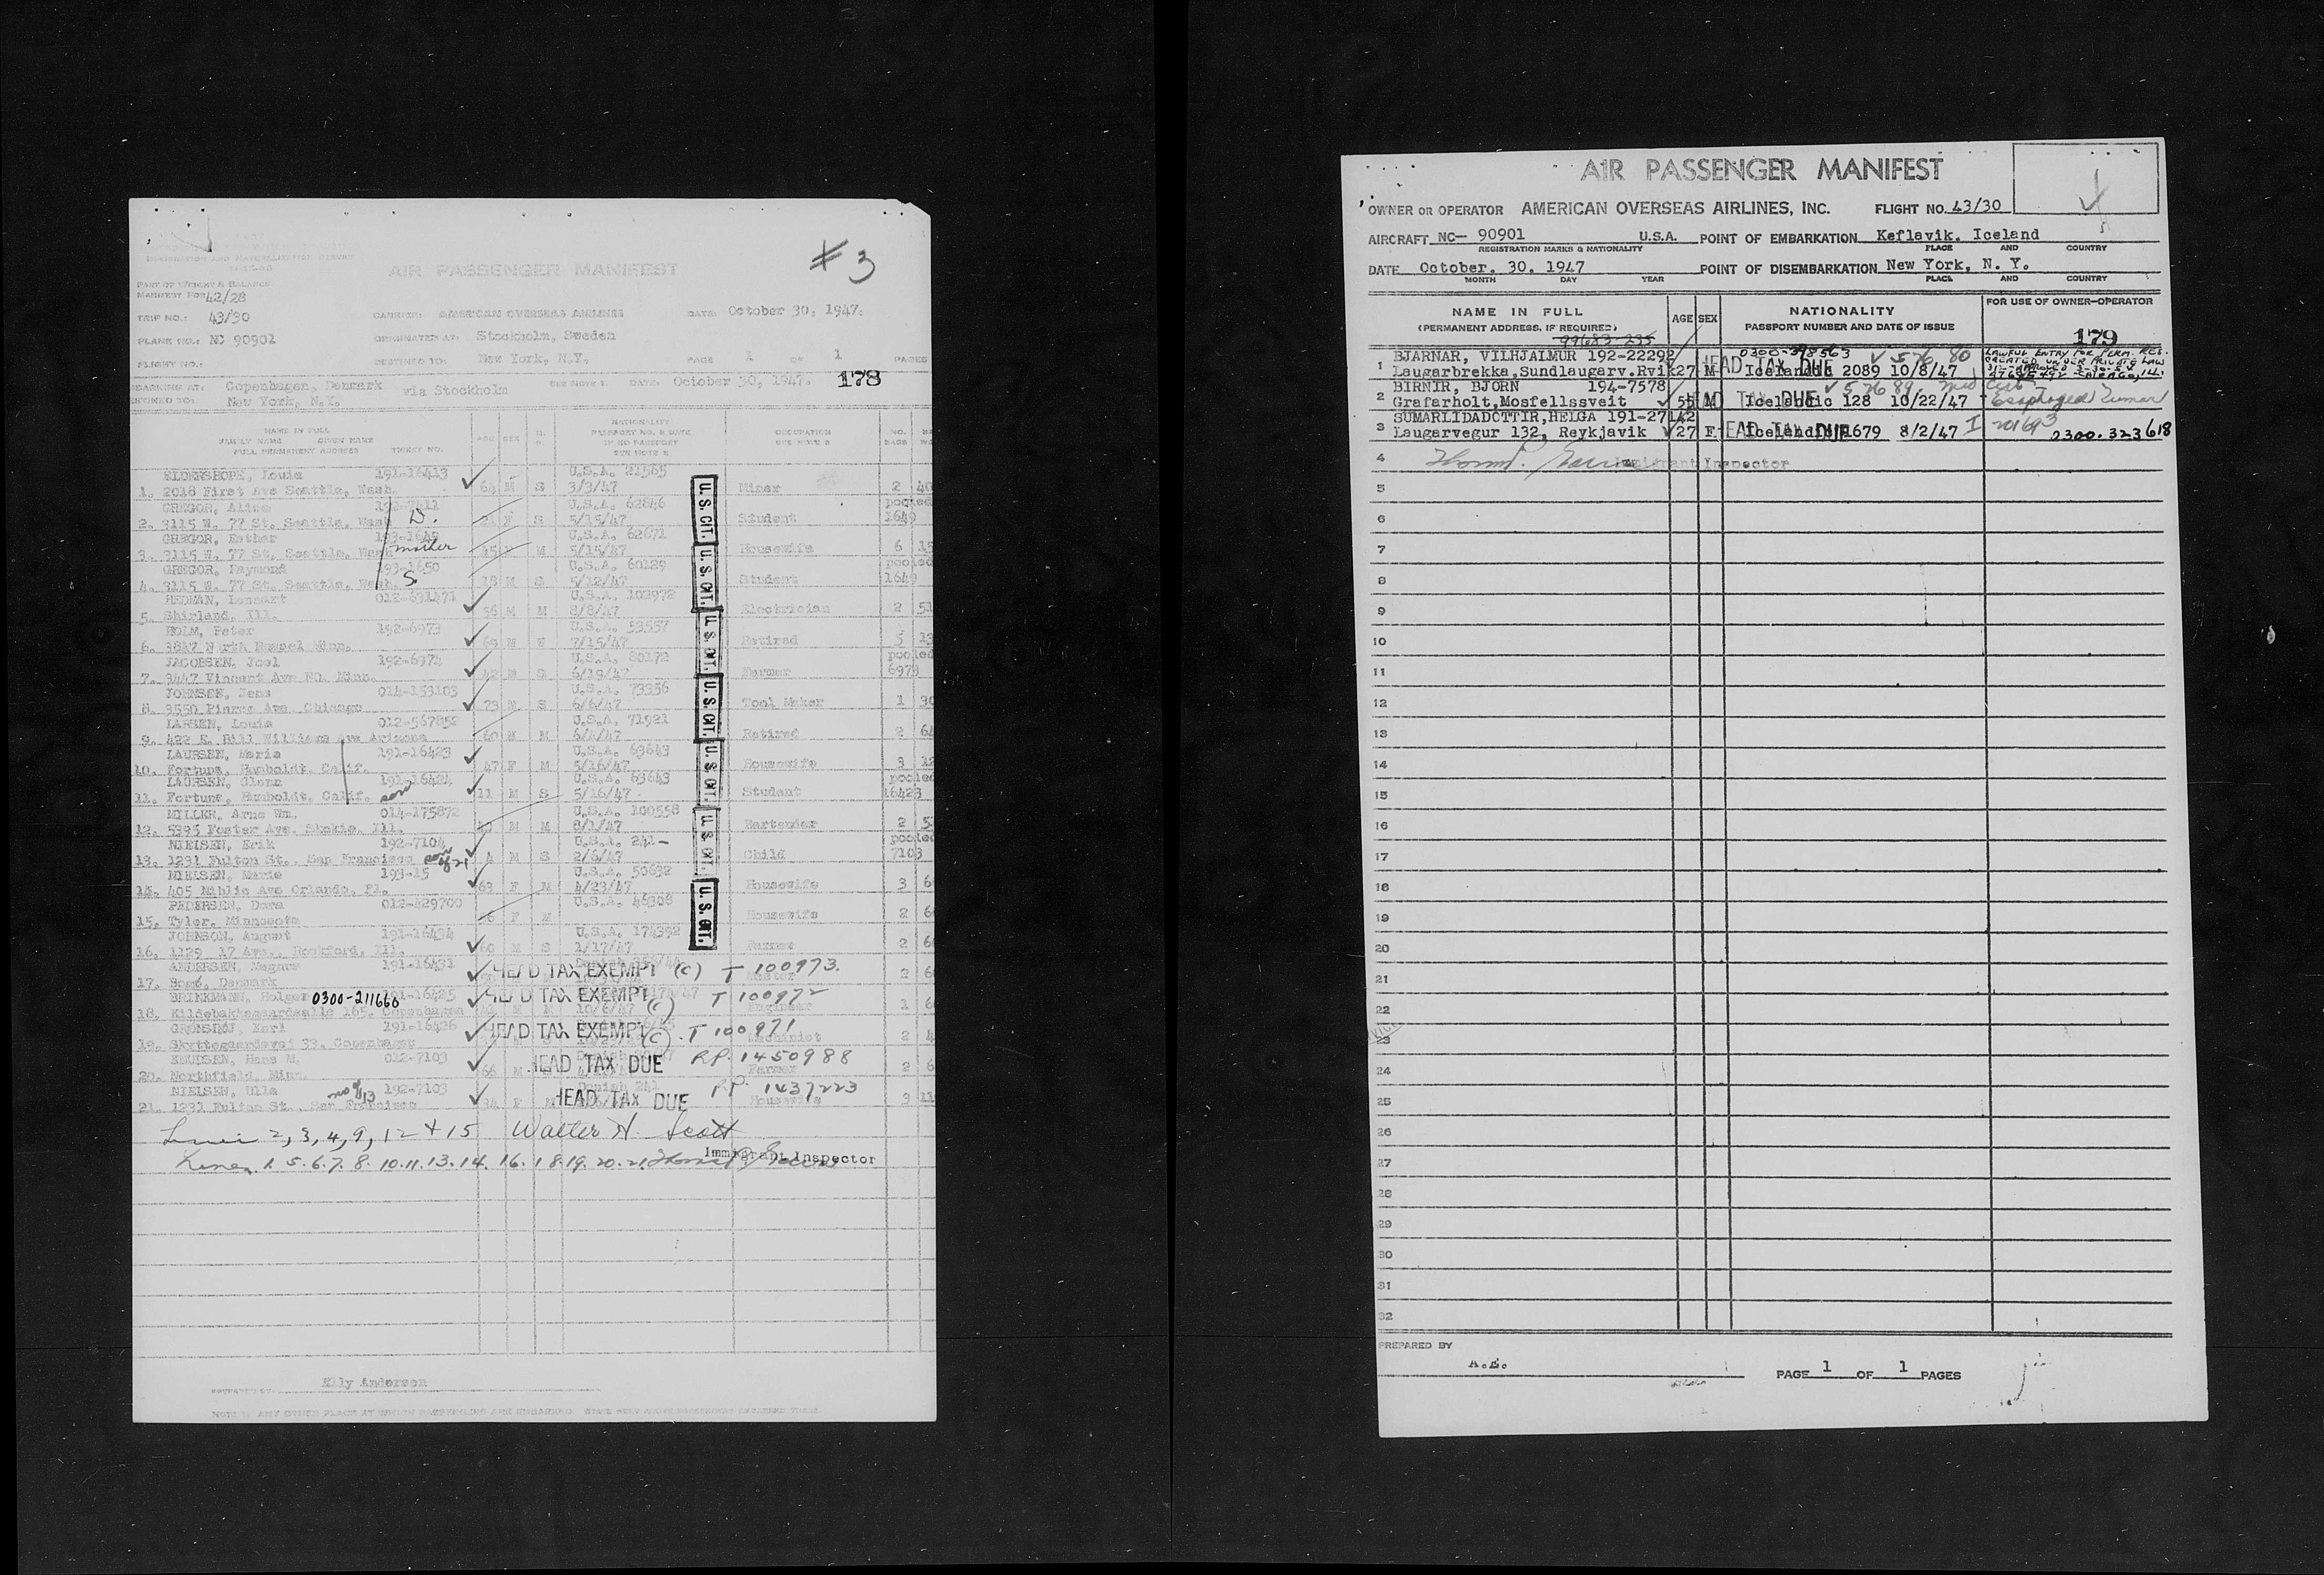 AIR PASSENGER MANIFEST
# 3
PART OF WEIGHT & BALANCE
MANIFEST FOR 42/28
TRIP NO.: 43/30 CARRIER: AMERICAN OVERSEAS AIRLINES DATE: October 30, 1947.
PLANE NO.: NC 90901 ORIGINATED AT: Stockholm, Sweden
FLIGHT NO.: DESTINED TO: New York, N.Y. PAGE 1 OF 1 PAGES
BARKING AT: Copenhagen, Denmark via Stockholm SEE NOTE 1. DATE: October 30, 1947. 178
New York, N.Y.
NAME IN FULL NATIONALITY
FAMILY NAME GIVEN NAME AGE SEX PASSPORT NO. & DATE OCCUPATION NO.
FULL PERMANENT ADDRESS TICKET NO. IF NO PASSPORT SEE NOTE 2 BAGS
SEE NOTE 2
ELDERSHOPE, Louis 191-16413 U.S.A. 21565
1. 2018 First Ave Seattle, Wash. 64 M S 3/3/47 Miner 2 40
GREGOR, Alice 192-7411 U.S.A. 62846 pooled
2. 3115 W. 77 St. Seattle, Wash D. 21 F S 5/15/47 Student 1649
GREGOR, Esther 193-1649 U.S.A. 62671
3. 3115 W. 77 St. Seattle, Wash mother 45 F M 5/15/47 Housewife 6 15
GREGOR, Raymond 193-1650 U.S.A. 60129 pooled
4. 3115 W. 77 St. Seattle, Wash. S. 18 M S 5/12/47 Student 1649
HEDMAN, Lennart 012-691471 U.S.A. 102972
5. Shirland, Ill. 56 M M 8/8/47 Electrician 2 51
HOLM, Peter 192-6973 U.S.A. 53557
6. 3847 North Russel Minn. 69 M 7/15/47 Retired 5 13
JACOBSEN, Joel 192-6974 U.S.A. 80172 pooled
7. 3447 Vincent Ave NO. Minn. 42 M S 6/19/47 Farmer 6973
JOHNSEN, Jens 014-153103 U.S.A. 73356
8. 3550 Pierce Ave. Chicago 73 M S 6/6/47 Tool Maker 1 30
LARSEN, Louis 012-567852 U.S.A. 71921
9. 422 E. Bill Williams Ave Arizona 60 M M 6/4/47 Retired 2 64
LAURSEN, Maria 191-16423 U.S.A. 63643
10. Fortuna, Humboldt, Calif. 47 F M 5/16/47 Housewife 3 12
LAURSEN, Glenn 191-16424 U.S.A. 63643 pooled
11. Fortuna, Humboldt, Calif. son 11 M S 5/16/47 Student 16423
MILLER, Arne Wm. 014-175872 U.S.A. 100558
12. 5395 Foster Ave. Skokie, Ill. M M 8/1/47 Bartender 2 5
NIELSEN, Erik 192-7104 U.S.A. 241- pooled
13. 1231 Fulton St., San Francisco son of 21 4 M S 2/6/47 Child 7103
NIELSEN, Marie 193-15 U.S.A. 50632
14. 405 Niblic Ave Orlando, Fl. 63 F M 4/23/47 Housewife 3 6
PEDERSEN, Dora 012-429700 U.S.A. 46308
15. Tyler, Minnesota F M Housewife 2 6
JOHNSON, August 191-16434 U.S.A. 174392
16. 1129 17 Ave., Rockford, Ill. 60 M S 1/17/47 Farmer 2 6
U.S. CIT. U.S. CIT. U.S. CIT. U.S. CIT. U.S. CIT. U.S. CIT. U.S. CIT.
ANDERSEN, Magnus 191-16431 HEAD TAX EXEMPT (C) T 100973.
17. Bogø, Denmark 2 6
BRINKMANN, Holger 0300-211660 191-16425 HEAD TAX EXEMPT (C) T 100972
18. Kildebakkegaardsalle 165, Copenhagen M M 10/6/47 Engineer 1 6
GRØNSHØJ, Karl 191-16426 HEAD TAX EXEMPT (C). T 100971
19. Skyttegaardsvej 33, Copenhagen Machinist 2 4
KNUDSEN, Hans M. 012-7103 HEAD TAX DUE R.P. 1450988
20. Northfield, Minn. 66 M Farmer 2 6
NIELSEN, Ulla mo of 13 192-7103 Danish 241 HEAD TAX DUE R.P. 1437223
21. 1231 Fulton St., San Francisco 34 F M Housewife 3 11
Lines 2, 3, 4, 9, 12 + 15 Walter H. Scott
Lines 1. 5. 6. 7. 8. 10. 11. 13. 14. 16. 18. 19. 20. 21.
Immigrant Inspector
Elly Andersen
AIR PASSENGER MANIFEST
OWNER OR OPERATOR AMERICAN OVERSEAS AIRLINES, INC. FLIGHT NO. 43/30
AIRCRAFT NC- 90901 U.S.A. POINT OF EMBARKATION Keflavik, Iceland
REGISTRATION MARKS & NATIONALITY PLACE AND COUNTRY
DATE October. 30. 1947 POINT OF DISEMBARKATION New York, N. Y.
MONTH DAY YEAR PLACE AND COUNTRY
NAME IN FULL AGE SEX NATIONALITY FOR USE OF OWNER-OPERATOR
(PERMANENT ADDRESS, IF REQUIRED) PASSPORT NUMBER AND DATE OF ISSUE
99683-235 179
BJARNAR, VILHJALMUR 192-22292 0300-398563 57680 LAWFUL ENTRY FOR PERM. RES.
1 Laugarbrekka,Sundlaugarv.Rvik 27 M HEAD TAX DUE Icelandic 2089 10/8/47 CREATED UNDER PRIVATE LAW
BIRNIR, BJORN 194-7578 57689 med cert
2 Grafarholt,Mosfellssveit 55 M HEAD TAX DUE Icelandic 128 10/22/47
SUMARLIDADOTTIR,HELGA 191-27142
3 Laugarvegur 132, Reykjavik 27 F HEAD TAX DUE Icelandic 1679 8/2/47 I 201693 2300.323618
4 Immigrant Inspector
5
6
7
8
9
10
11
12
13
14
15
16
17
18
19
20
21
22
23
24
25
26
27
28
29
30
31
32
PREPARED BY
A.E. PAGE 1 OF 1 PAGES